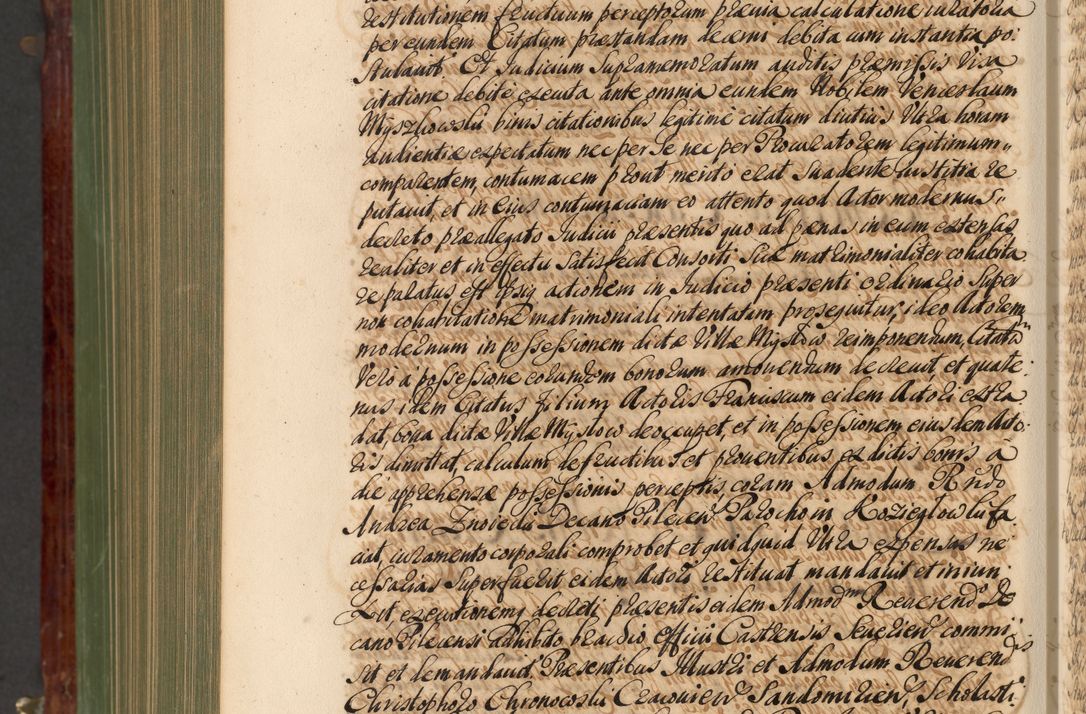 restitutionem fructuum perceptorum prævia calculatione iuratoria
per eundem Citatum præstandam decerni debita cum instantia po:
stulavit. Et Judicium supramemoratum auditis præmissis Visa
citatione debite executa ante omnia eundem Nobilem Venceslaum
Myszkowski binis citationibus legitime citatum diutius Ultra horam
audientiæ expectatum nec per se nec per Procuratorem legitimum
comparentem, contumacem prout merito erat suadente iustitia re
putavit, et in Eius contumaciam eo attento quod Actor modernus
decreto præallegato Judicii præsentis quo ad pænas in eum extensas
realiter et in effectu satisfecit Consorti suæ matrimonialiter cohabita
re paratus est ipsiq actionem in Judicio præsenti ordinario super
non cohabitatione matrimoniali intentatam prosequitur, ideo Actorem
modernum in possessionem dictæ Villæ Mysłow reimponendum, Citatũ
Vero a possessione eorundem bonorum amovendum decrevit et quate:
nus idem Citatus filium Actoris Franciscum eidem Actori extra
dat, bona dictæ Villæ Mysłow deoccupet, et in possessionem eiusdem Acto:
ris dimittat, calculum de fructibus et proventibus ex dictis bonis à
die apprehensæ possessionis perceptis, coram Admodum Rndo
Andrea Znoiecki Decano Pilecien Parocho in Koziegłow ki fa
ciat, iuramento corporali comprobet et quidquid Ultra expensas ne
cessarias superfuerit eidem Actori restituat mandavit et iniun
xit, executionem decreti præsentis eidem Admodm Reverend De
cano Pilecensi adhibito brachio officii Castrensis Severien commi
sit et demandavit. Præsentibus Illustri et Admodum Reverendis
Christophoro Chronowski Cracovien Sandomirien, Scholasti